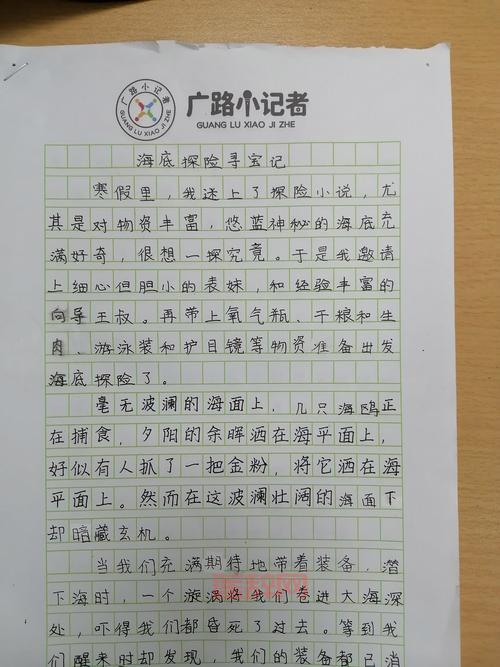 广路小记者
GUANG LU XIAO JI ZHE
广路小记者
GUANG LU XIAO JI ZHE
海底探险寻宝记
寒假里，我迷上了探险小说，尤
其是对物资丰富，悠蓝神秘的海底充
满好奇，很想一探究竟。于是我邀请
上细心但胆小的表妹，和经验丰富的
向导王叔。再带上氧气瓶、干粮和生
肉、游泳装和护目镜等物资准备出发
海底探险了。
毫无波澜的海面上，几只海鸥正
在捕食，夕阳的余晖洒在海平面上，
好似有人抓了一把金粉，将它洒在海
平面上。然而在这波澜壮阔的海面下
却暗藏玄机。
当我们充满期待地带着装备，潜
下海时，一个旋涡将我们卷进大海深
处，吓得我们都昏死了过去。等到我
们醒来时却发现，我们的装备都已消